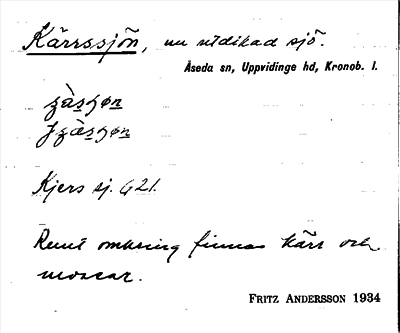 Kärrssjön, nu utdikad sjö.
Åseda sn, Uppvidinge hd, Kronob. l.
Kjers sj. G 21.
Runt omkring finnas kärr och
mossar.
FRITZ ANDERSSON 1934